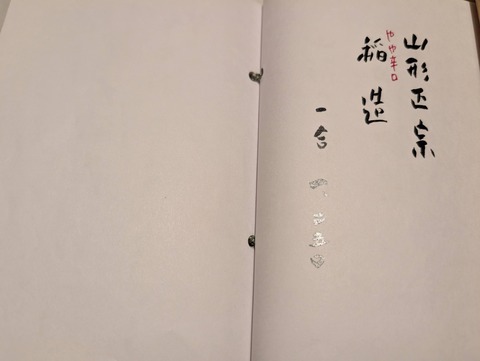 山形正宗
やや辛口
稲造
一合